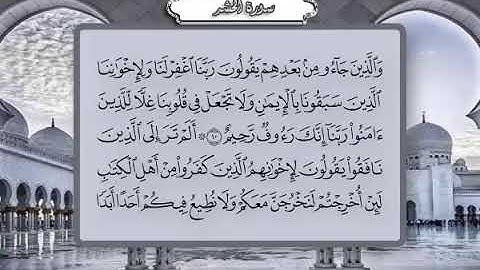 سورة الحشر
وَالَّذِينَ جَاءُو مِنْ بَعْدِهِمْ يَقُولُونَ رَبَّنَا اغْفِرْ لَنَا وَلِإِخْوَانِنَا
الَّذِينَ سَبَقُونَا بِالْإِيمَانِ وَلَا تَجْعَلْ فِي قُلُوبِنَا غِلًّا لِلَّذِينَ
ءَامَنُوا رَبَّنَا إِنَّكَ رَءُوفٌ رَحِيمٌ ۝١٠ ۞ أَلَمْ تَرَ إِلَى الَّذِينَ
نَافَقُوا يَقُولُونَ لِإِخْوَانِهِمُ الَّذِينَ كَفَرُوا مِنْ أَهْلِ الْكِتَابِ
لَئِنْ أُخْرِجْتُمْ لَنَخْرُجَنَّ مَعَكُمْ وَلَا نُطِيعُ فِيكُمْ أَحَدًا أَبَدًا